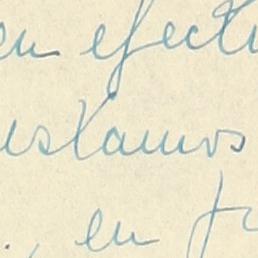 en efecti
estamos
., en f